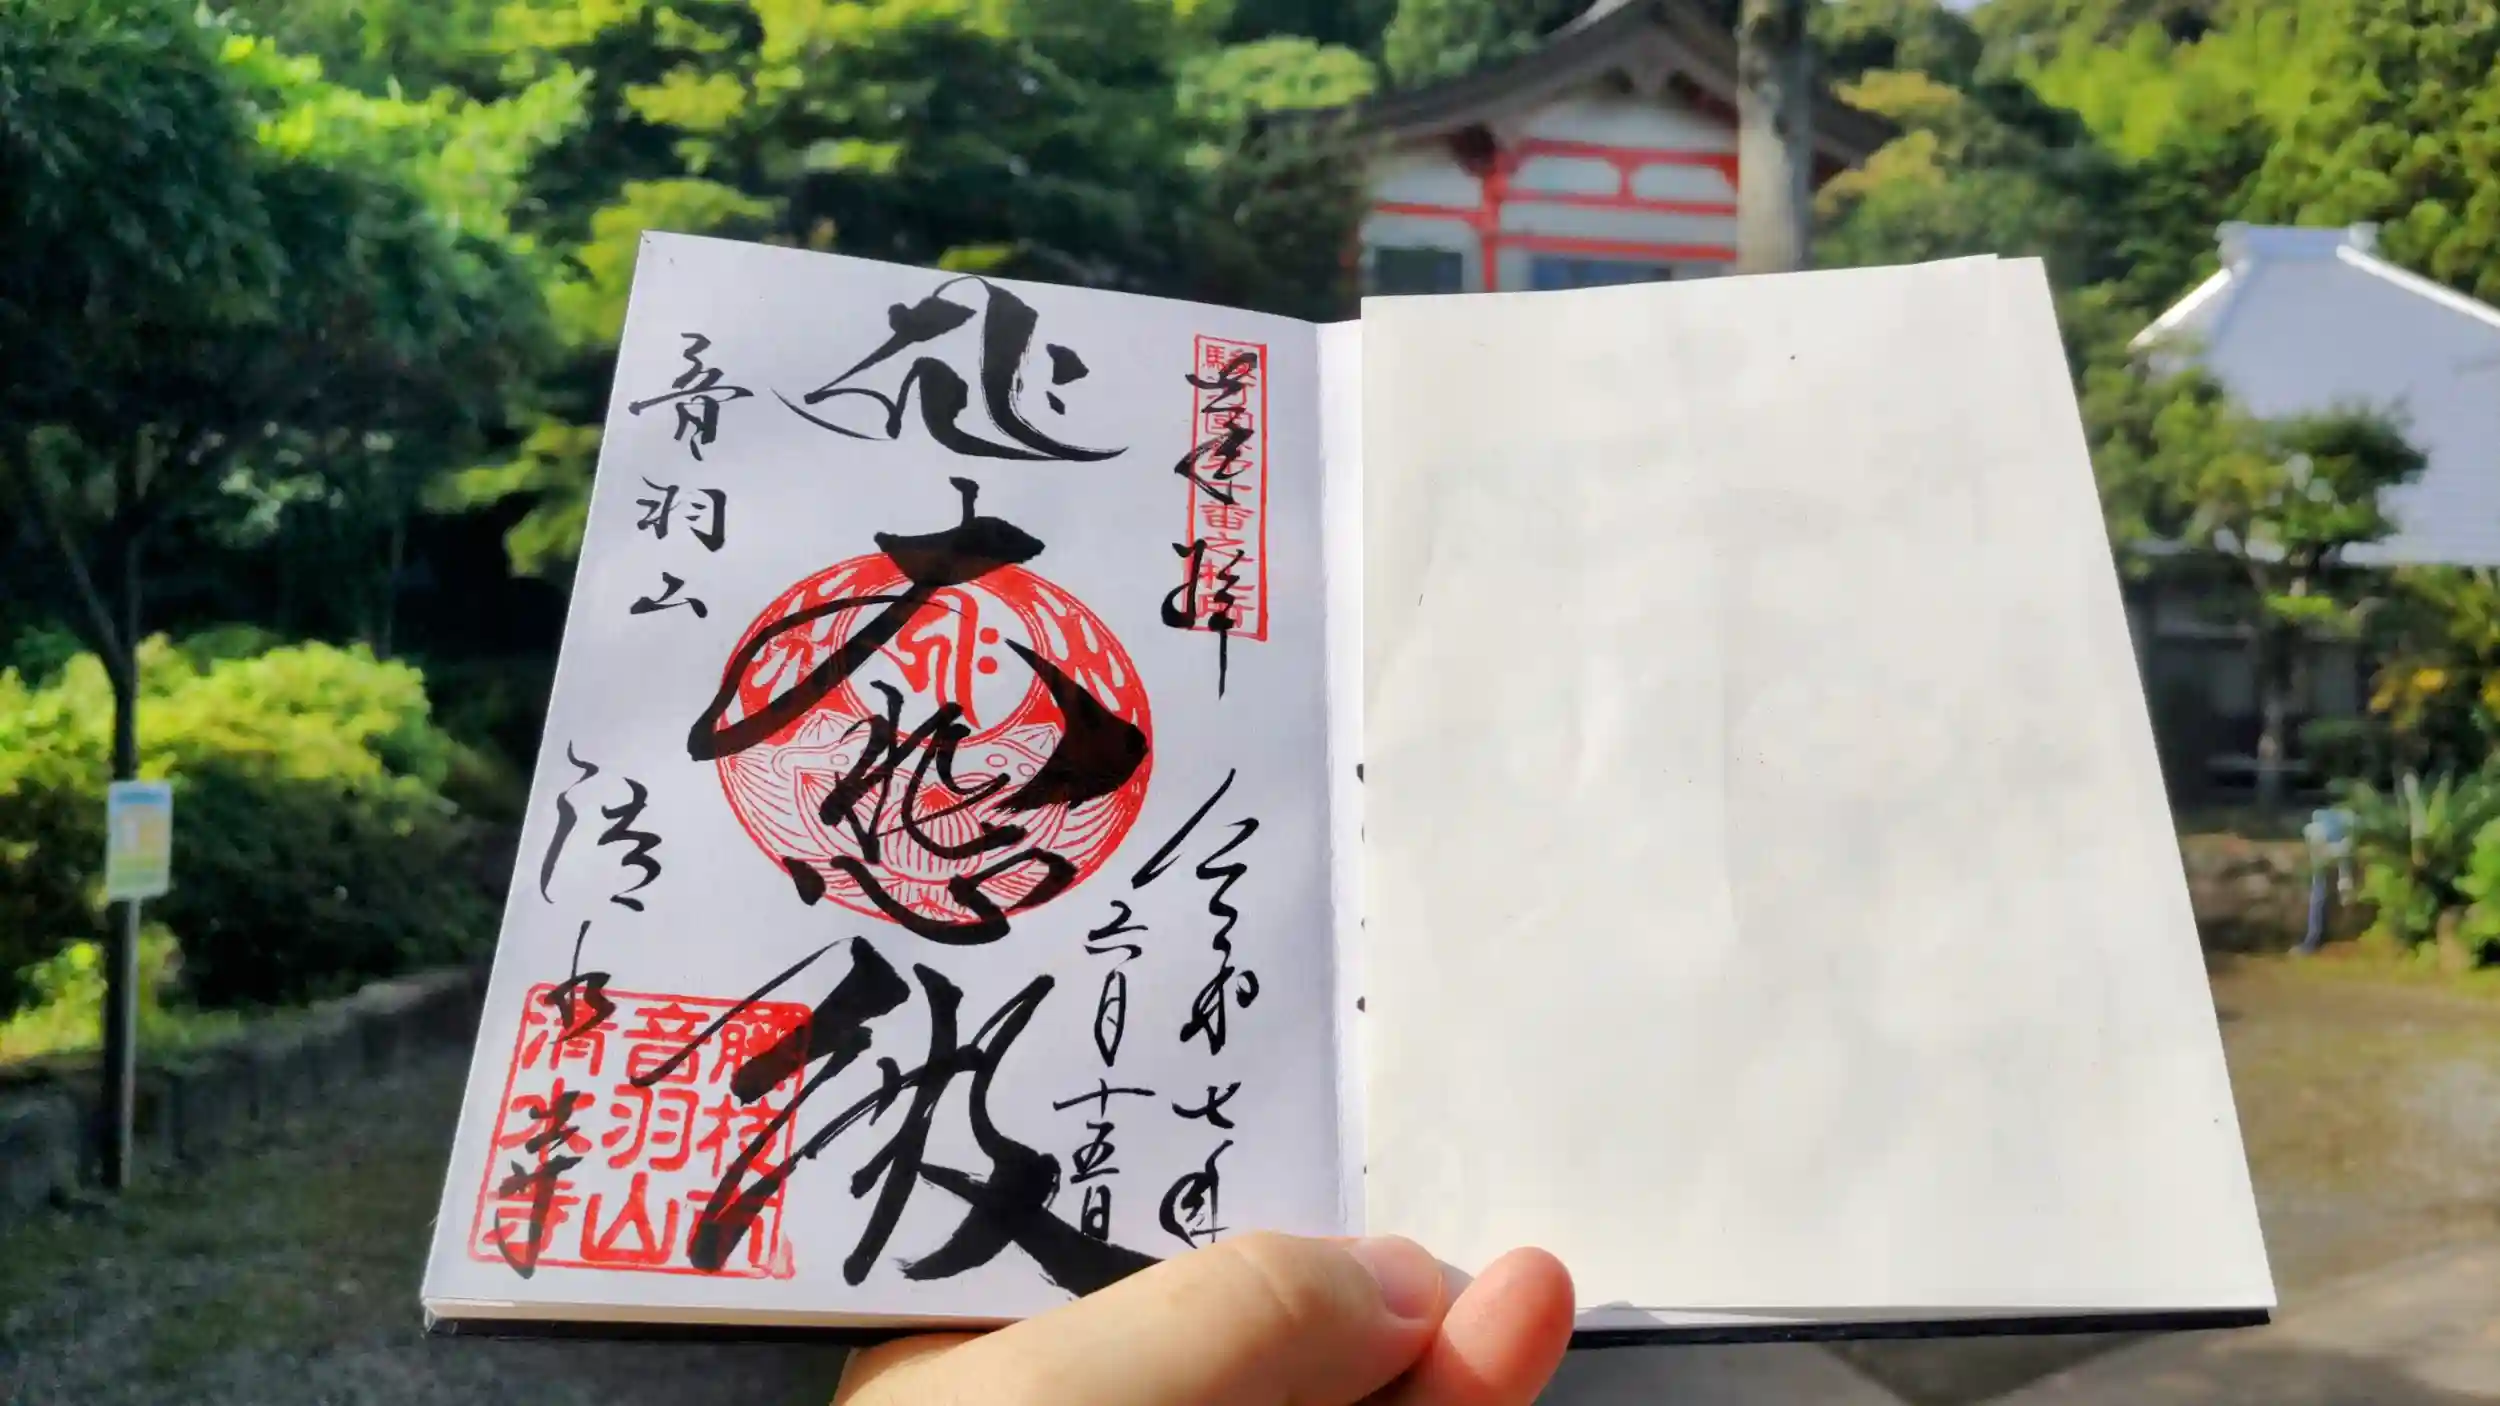 奉拝
駿河國第十番之札所
令和七年
六月十五日
大悲殿
音羽山
清水寺
藤枝市
音羽山
清水寺